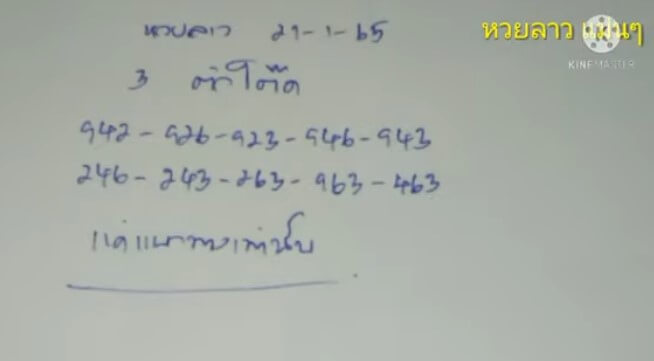 หวยลาว 21-1-65
หวยลาว แม่นๆ
KINEMASTER
3 ตัวโต๊ด
942-926-923-946-943
246-243-263-963-463
แค่แนวทางเท่านั้น